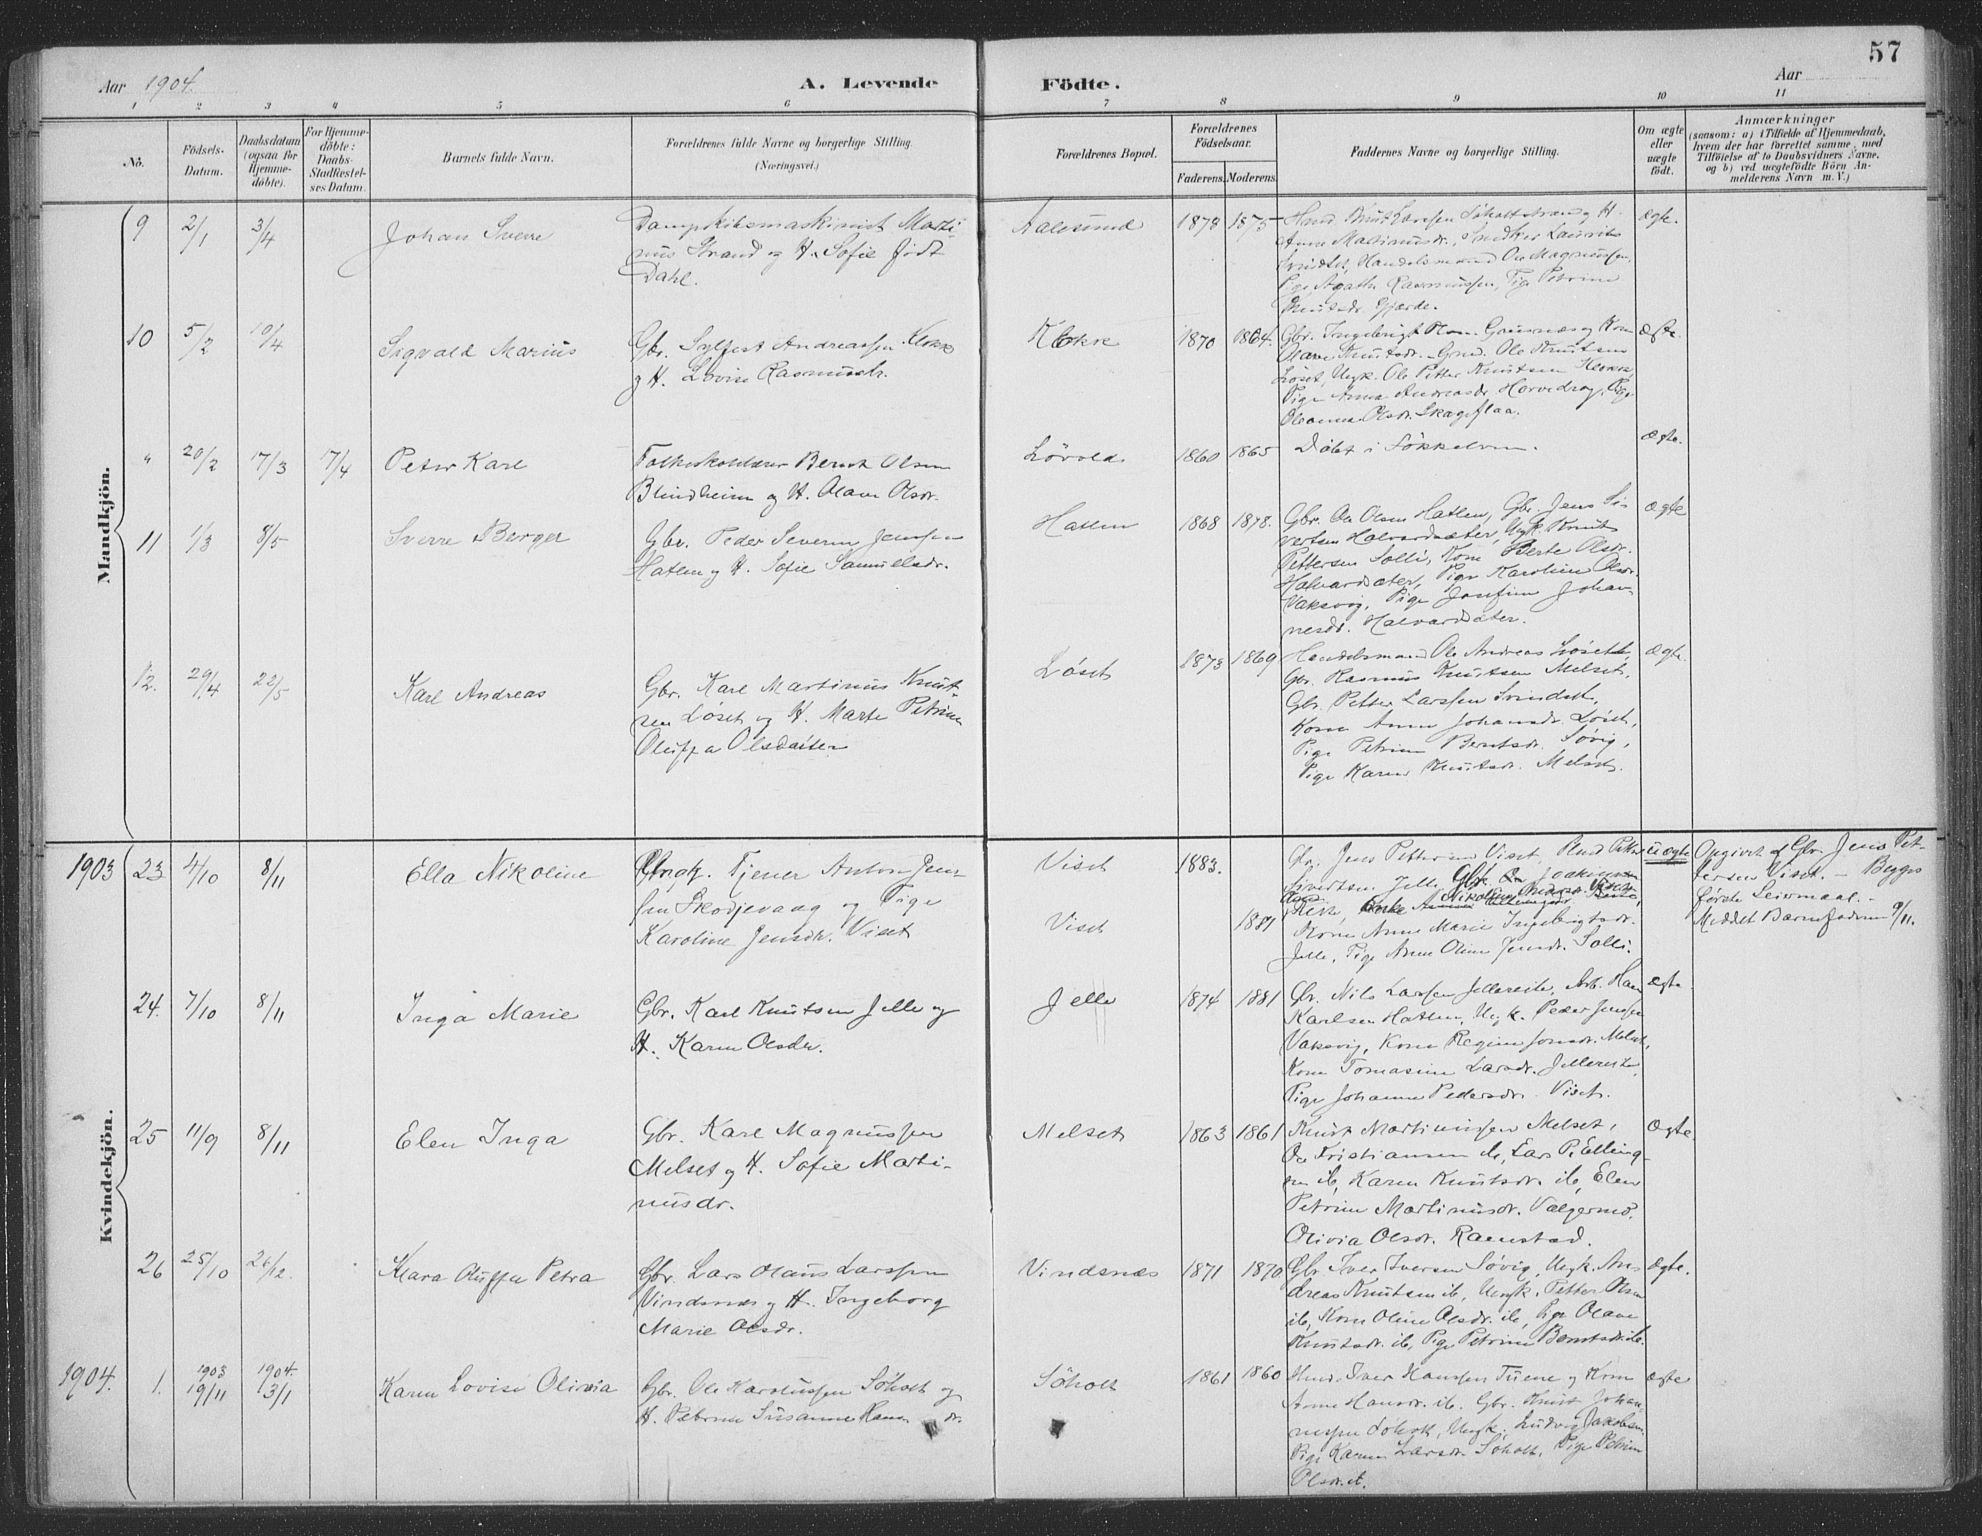 57
Aar 1904.
A. Levende
Födte.
Aar
1 2 3 4 5 6 7 8 9 10 11
No.
Födsels-
Datum.
Daabsdatum
(ogsaa for
Hjemme-
döbte).
For Hjemme-
döbte:
Daabs-
Stadfæstel-
ses Datum.
Barnets fulde Navn.
Forældrenes fulde Navne og borgerlige Stilling.
(Næringsvei.)
Forældrenes Bopæl.
Forældrenes
Födselsaar.
Faderens. Moderens.
Faddernes Navne og borgerlige Stilling.
Om ægte
eller
uægte
födt.
Anmærkninger
(saasom: a) i Tilfælde af Hjemmedaab,
hvem der har forrettet samme, med
Tilföielse af to Daabsvidners Navne,
og b) ved uægtefödte Börn An-
melderens Navn m. V.)
Mandkjön.
9 2/1 3/4 Johan Sverre
Dampskibsmaskinist Marti-
nus Strand og H. Sofie födt
Dahl.
Aalesund 1878 1875
Anne Martinusdr., Snedker Laurits
Svindset, Handelsmand Ole Magnussen,
Pige Agathe Rasmussen, Pige Petrine
Knutsdr. Gjærde.
ægte.
10 5/2 10/4 Sigvald Marius
Gbr. Sylfest Andreassen Klokk
og H. Lovise Rasmusdr.
Klokk 1870 1864.
Gbr. Ingebrigt Olsen Grausnæs og Kone
Olave Knutsdr., Gmd. Ole Knutsen
Löset, Ungk. Ole Petter Knutsen Klokk,
Pige Anna Andreasdr. Horvedrag, Pige
Oleanna Olsdr. Skageflaa.
Ægte.
" 20/2 17/3 17/4 Peter Karl
Folkeskolelærer Bernt Olsen
Blindheim og H. Olave Olsdr.
Lövold 1860 1865
Döbt i Sökkelven.
Ægte.
11 1/3 8/5 Sverre Birger
Gbr. Peder Severin Jensen
Hatlen og H. Sofie Samuelsdr.
Hatlen 1868 1878.
Gbr. Ole Olsen Hatlen, Gbr. Jens Si-
vertsen Halvardsæter, Ungk. Knut
Pettersen Solli, Kone Berte Olsdr.
Halvardsæter, Pige Karoline Olsdr.
Vaksvig, Pige Josefine Johan-
nesdr. Halvardsæter.
ægte
12. 29/4 22/5 Karl Andreas
Gbr. Karl Martinus Knut-
sen Löset og H. Marte Petrine
Oluffa Olsdatter
Löset 1873 1869
Handelsmand Ole Andreas Löseth,
Gbr. Rasmus Knutsen Melset,
Gbr. Petter Larssen Svindset,
Kone Anne Johansdr. Löset,
Pige Petrine Berntsdr. Søvig,
Pige Karen Knutsdr. Melset.
Ægte.
Kvindekjön.
1903 23 4/10 8/11 Ella Nikoline
Ungk. Tjener Anton Jen-
sen Skodjevaag og Pige
Karoline Jensdr. Viset
Viset 1883.
Viset 1881
Gbr. Jens Pettersen Viset,
Sivertsen Jelle,
Kone Anne Marie Ingebrigtsdr.
Jelle, Pige Anne Oline Jensdr. Solli.
uægte
Opgivet af Gbr. Jens Pet-
tersen Viset. – Begges
förste Leiermaal. –
Meddelt Barnefaderen 9/11.
24. 7/10 8/11 Inga Marie
Gbr. Karl Knutsen Jelle og
H. Karen Olsdr.
Jelle 1874 1881
Gbr. Nils Larsen Jellereite, Arb. Hans
Karlsen Hatlen, Ungk. Peder Jensen
Vaksvig, Kone Regine Jonsdr. Melset,
Kone Tomasine Larsdr. Jellereite,
Pige Johanne Pedersdr. Viset.
ægte.
25 11/9 8/11 Elen Inga
Gbr. Karl Magnussen
Melset og H. Sofie Marti-
nusdr.
Melset 1863 1861
Knut Martinussen Melset,
Ole Kristiansen ib, Lars P. Elling-
sen ib, Karen Knutsdr. ib, Elen
Petrine Martinusdr. Valgermo,
Olivia Olsdr. Ramstad.
Ægte.
26 25/10 26/12. Klara Oluffa Petra
Gbr. Lars Olaus Larssen
Vindsnæs og H. Ingeborg
Marie Olsdr.
Vindsnæs 1871 1870
Gbr Iver Iversen Søvig, Ungk. An-
dreas Knutsen ib, Ungk. Petter Olsen
ib, Kone Oline Olsdr. ib, Pige Olave
Knutsdr. ib, Pige Petrine Berntsdr. ib.
ægte.
1904. 1. 1903 19/11 1904. 3/1 Karen Lovise Olivia
Gbr. Ole Karolussen Söholt og
H. Petrine Susanne Hans dr.
Söholt 1861 1860
Hmd. Iver Hanssen Tuene og Kone
Anne Hansdr. ib. Gbr. Knut Johan-
nessen Söholt, Ungk. Ludvig Jakobsen
Pige Karen Larsdr. Söholt, Pige Petrine
Olsdr. ib.
ægte